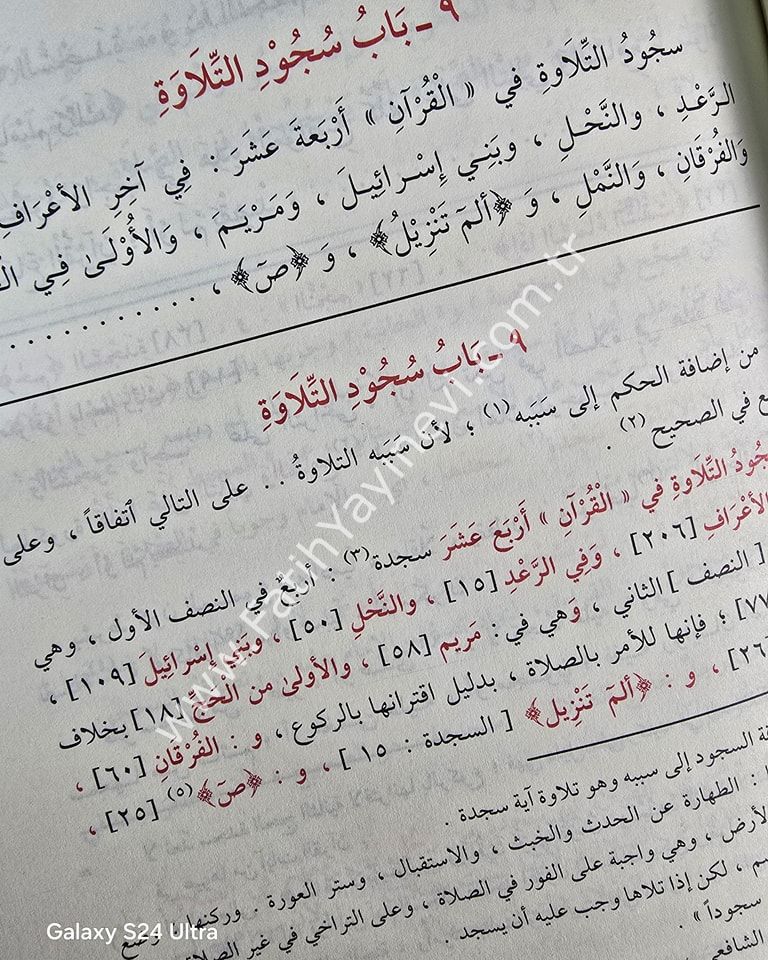 ٩ ـ بَابُ سُجُوْدِ التِّلَاوَةِ
سجُودُ التِّلَاوةِ في « الْقُرْآنِ » أَرْبَعةَ عَشَرَ : فِي آخِرِ الأعْرَافِ
الرَّعْدِ ، والنَّحْلِ ، وبَنِي إِسْرائِيلَ ، وَمَرْيَمَ ، وَالأُوْلَىٰ فِي
وَالفُرْقَانِ ، والنَّمْلِ ، وَ ﴿الٓمٓ تَنْزِيْلُ﴾ ، وَ ﴿صٓ﴾ ، . . . . . . . . . . . .
٩ ـ بَابُ سُجُوْدِ التِّلَاوَةِ
من إضافة الحكم إلى سَبَبه(١) ؛ لأن سَبَبه التلاوةُ . . على التالي ٱتفاقاً ، وعلى
في الصحيح(٢) .
التِّلَاوةِ في « الْقُرْآنِ » أَرْبَعَ عَشَرَ سجدة(٣) : أربعٌ في النصف الأول ، وهي
الأعْرَافِ [٢٠٦] ، وَفي الرَّعْدِ [١٥] ، والنَّحْلِ [٥٠] ، وبَنِي إِسْرائِيلَ [١٠٩] ،
[ النصف ] الثاني ، وَهي في : مَريم [٥٨] ، والأولىٰ من الحَجِّ [١٨] بخلاف
؛ فإنها للأمر بالصلاة ، بدليل اقترانها بالركوع ، و : الفُرْقَانِ [٦٠] ،
، و : ﴿الٓمٓ تَنْزِيل﴾ [ السجدة : ١٥ ] ، و : ﴿صٓ﴾(٥) [٢٥] ،
السجود إلى سببه وهو تلاوة آية سجدة .
: الطهارة عن الحدث والخبث ، والاستقبال ، وستر العورة . وركنها : وضع
الأرض ، وهي واجبة على الفور في الصلاة ، وعلى التراخي في غير
، لكن إذا تلاها وجب عليه أن يسجد .
سجوداً » .
الشافعي
www.FatihYayinevi.com.tr
Galaxy S24 Ultra